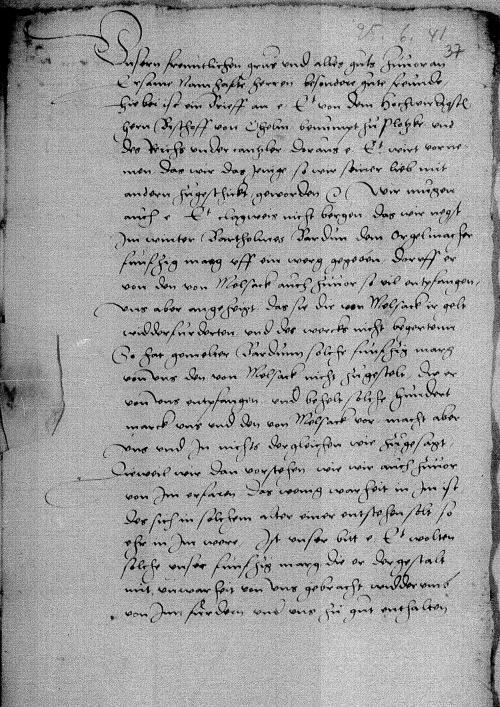 25. 6. 41
37
Unsern freuntlichen grus und alles guts zuuor an
Ersame Namhafte herren besondere gute freunde
hiebei ist ein brieff an e. Et von dem hochwirdigst
hern Bischoff von Cholm benumpt zu Plotzke und
des Reichs undercantzler daraus e. Et wirt vorne
men das wir das jenige so wir seiner lieb mit
andern zugeschickt geworden Wir mugen
auch e. Et clagweis nicht bergen das wir negst
Im winter Bartholmes Bardun dem Orgelmacher
funfzig marg uff ein werg gegeben daruff er
von den von Melsack auch zuuor so vil entpfangen,
uns aber angezeigt das sie die von Melsack ir gelt
widderfurderten und des wercks nicht begerten
So hat gemelter Bardun solche funfzig marg
von uns den von Melsack nicht zugestelt, die er
von uns entpfangen und behelt solche hundert
marck uns und den von Melsack vor, macht aber
uns und In nichts dergleichen wie zugesagt,
Dieweil wir dan vorstehen wie wir auch zuuor
von Im erfaren das wenig warheit in Im ist
des sich in solchem alter einer entsehen solt so
ehr in Im were, Ist unser bitt e. Et wolten
solche unser funfzig marg die er dergestalt
mit unwarheit von uns gebracht widder uns
von Im furdern und uns zu gut enthalten